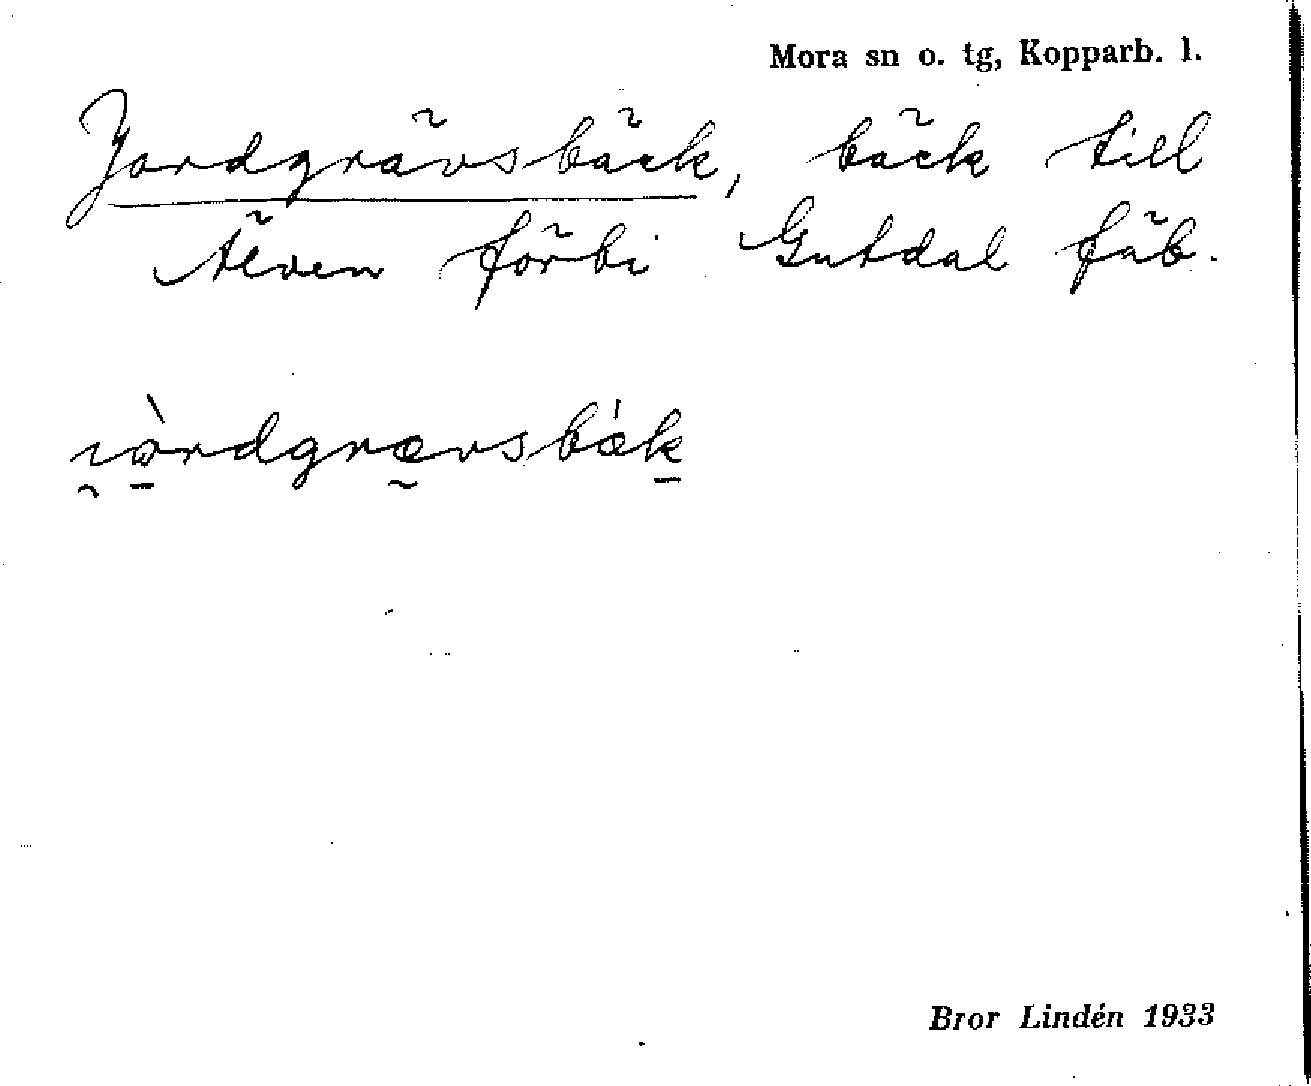 Mora sn o. tg, Kopparb. l.
Jordgrävsbäck, bäck till
Älven förbi Gutdal fäb.
i̯òrdgrævsbǽk
Bror Lindén 1933